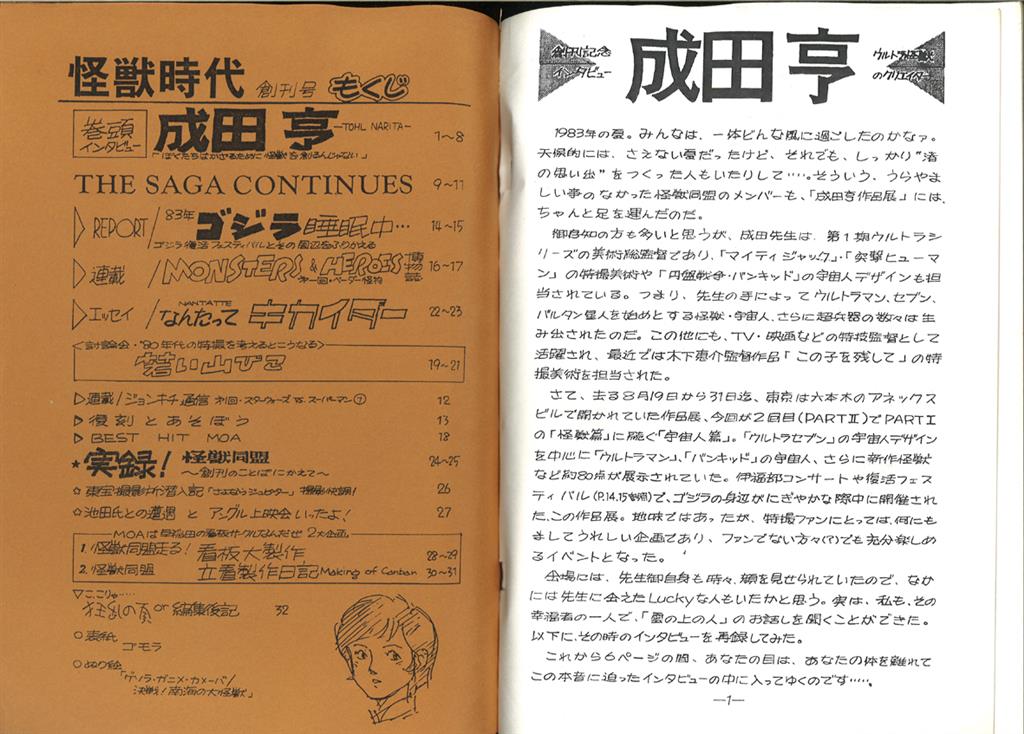 怪獣時代 創刊号 もくじ
巻頭インタビュー 成田亨 —TOHL NARITA— 1~8
「ぼくたちはかざるために怪獣を創るんじゃない」
THE SAGA CONTINUES 9~11
REPORT/83年ゴジラ睡眠中… 14~15
ゴジラ復活フェスティバルとその周辺をふりかえる
連載/MONSTERS & HEROES 博物誌 16~17
エッセイ/NANTATTE なんたって キカイダー 22~23
<討論会・'80年代の特撮を考えるとこうなる>
若い山びこ 19~21
▷連載/ジョンキチ通信 スターウォーズ vs. スーパーマン① 12
▷復刻とあそぼう 13
▷BEST HIT MOA 18
★実録! 怪獣同盟 24~25
~創刊のことばにかえて~
☆東宝撮影所潜入記「さよならジュピター」撮影快調! 26
☆池田氏との遭遇とアングル上映会いったよ! 27
MOAは早稲田の看板サークルなんだぜ 2大企画
1. 怪獣同盟走る! 看板大製作 28~29
2. 怪獣同盟 立看製作日記 Making of Canban 30~31
▽ここりゃ……
狂乱の宴 or 編集後記 32
○表紙
ゴモラ
○ぬり絵
「ゲゾラ・ガニメ・カメーバ/
決戦!南海の大怪獣」
創刊記念インタビュー 成田亨 ウルトラ怪獣のクリエイター
1983年の夏。みんなは、一体どんな風に過ごしたのかなァ。
天候的には、さえない夏だったけど、それでも、しっかり“渚
の思い出”をつくった人もいたりして……。そういう、うらやま
しい事のなかった怪獣同盟のメンバーも、「成田亨作品展」には、
ちゃんと足を運んだのだ。
御自知の方も多いと思うが、成田先生は、第1期ウルトラシ
リーズの美術総監督であり、「マイティジャック」・「突撃ヒューマ
ン」の特撮美術や「円盤戦争・バンキッド」の宇宙人デザインも担
当されている。つまり、先生の手によってウルトラマン、セブン、
バルタン星人を始めとする怪獣・宇宙人、さらに超兵器の数々は生
み出されたのだ。この他にも、TV・映画などの特技監督として
活躍され、最近では木下恵介監督作品「この子を残して」の特
撮美術を担当された。
さて、去る8月19日から31日迄、東京は六本木のアネックス
ビルで開かれていた作品展、今回が2回目(PARTⅡ)でPARTⅠ
の「怪獣篇」に続く「宇宙人篇」。「ウルトラセブン」の宇宙人デザイン
を中心に「ウルトラマン」、「バンキッド」の宇宙人、さらに新作怪獣
など約80点が展示されていた。伊福部コンサートや復活フェス
ティバル(P.14,15参照)で、ゴジラの身辺がにぎやかな際中に開催され
た、この作品展。地味ではあったが、特撮ファンにとっては、何にも
ましてうれしい企画であり、ファンでない方々(?)でも充分楽しめ
るイベントとなった。
会場には、先生御自身も時々、顔を見せられていたので、なか
には先生に会えたLuckyな人もいたかと思う。実は、私も、その
幸福者の一人で、「雲の上の人」のお話しを聞くことができた。
以下に、その時のインタビューを再録してみた。
これから6ページの間、あなたの目は、あなたの体を離れて
この本音に迫ったインタビューの中に入ってゆくのです……。
—1—